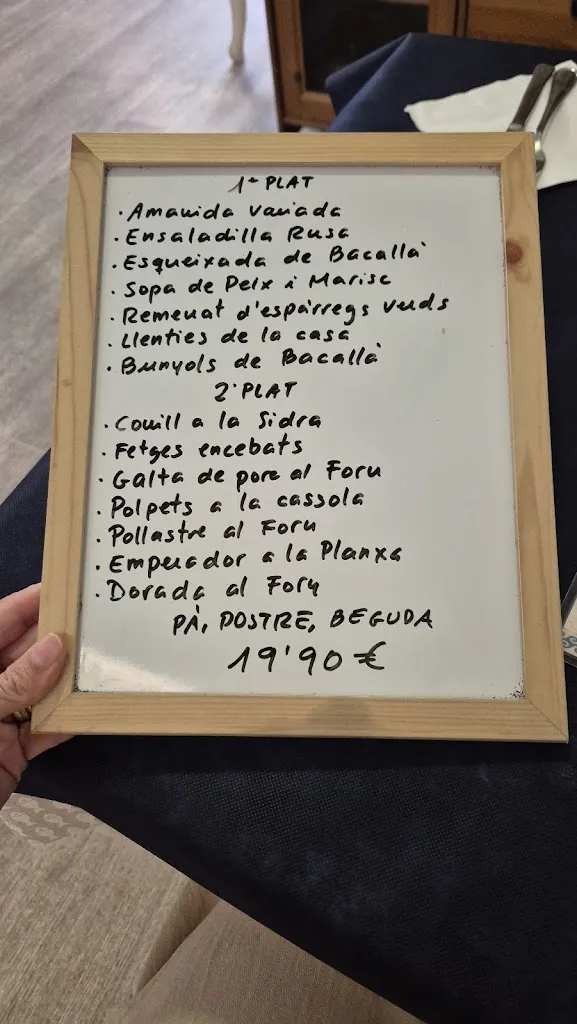 1er PLAT
· Amanida variada
· Ensaladilla Rusa
· Esqueixada de Bacallà
· Sopa de Peix i Marisc
· Remenat d'espàrregs verds
· Llenties de la casa
· Bunyols de Bacallà
2º PLAT
· Conill a la Sidra
· Fetges encebats
· Galta de porc al Forn
· Polpets a la cassola
· Pollastre al Forn
· Emperador a la Planxa
· Dorada al Forn
PÀ, POSTRE, BEGUDA
19'90 €